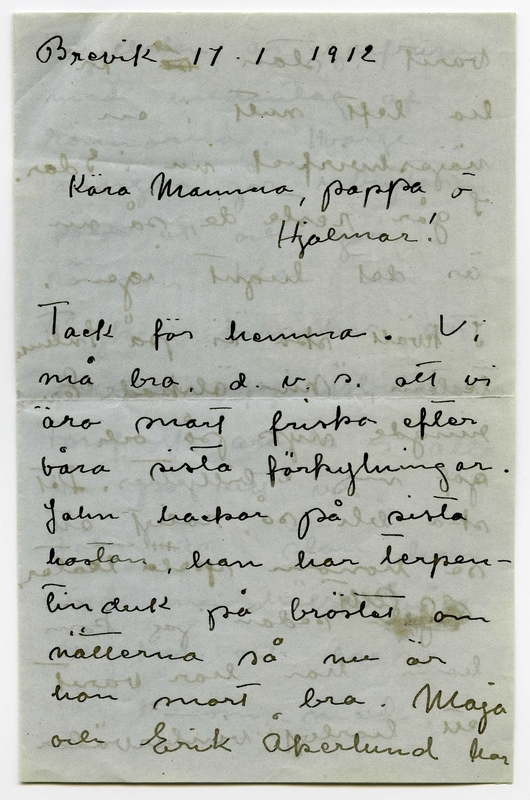 Brevik 17.1 1912
Kära Mamma, pappa o
Hjalmar!
Tack för hemma. Vi
må bra. d. v. s. att vi
äro snart friska efter
våra sista förkylningar.
John hackar på sista
hostan, han har terpen-
tinduk på bröstet om
nätterna så nu är
han snart bra. Maja
och Erik Åkerlund har